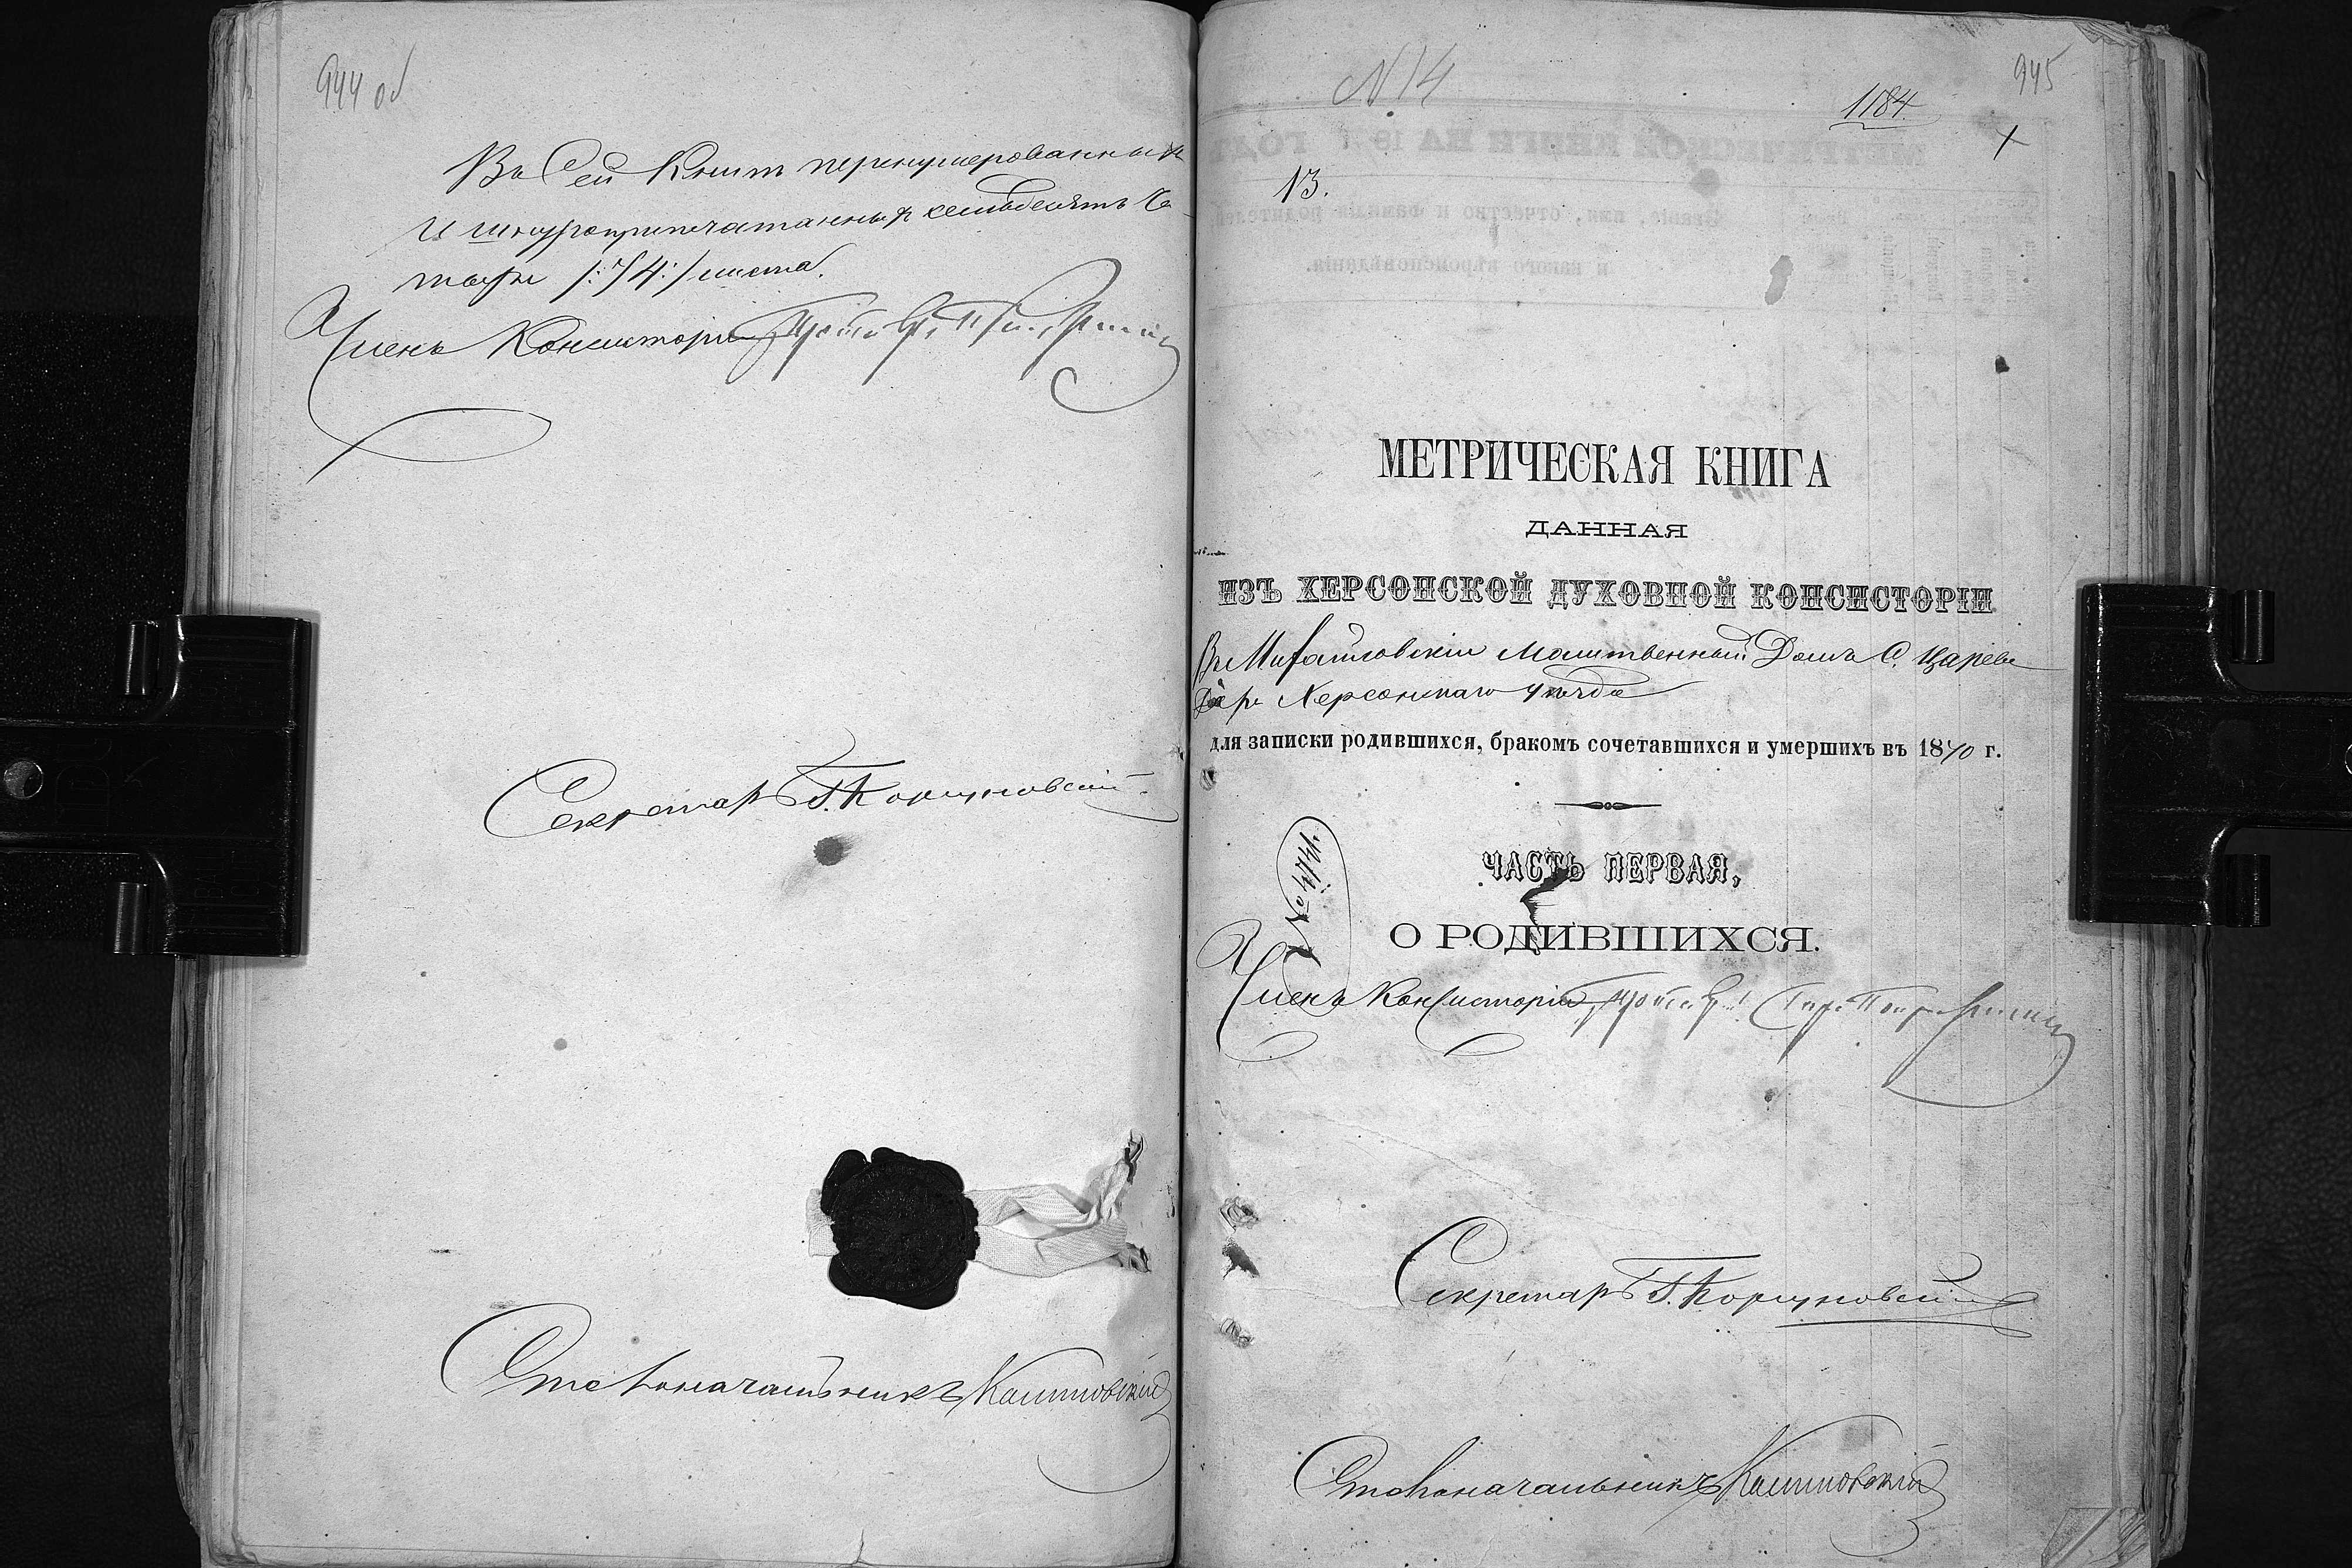 944 об
Въ Сей Книгѣ перенумерованныхъ
и шнуроприпечатанныхъ семьдесятъ че-
тыре /:74:/ листа.
Членъ Консисторіи
Секретарь Г. Коршуновскій
Столоначальникъ Калиновскій
N 14
945
1184.
13.
МЕТРИЧЕСКАЯ КНИГА
ДАННАЯ
ИЗЪ ХЕРСОНСКОЙ ДУХОВНОЙ КОНСИСТОРІИ
Въ Михайловскій молитвенный Домъ С. Царева
Дара Херсонскаго уѣзда
для записки родившихся, бракомъ сочетавшихся и умершихъ въ 1870 г.
ЧАСТЬ ПЕРВАЯ,
О РОДИВШИХСЯ.
Членъ Консисторіи
Секретарь Г. Коршуновскій
Столоначальникъ Калиновскій